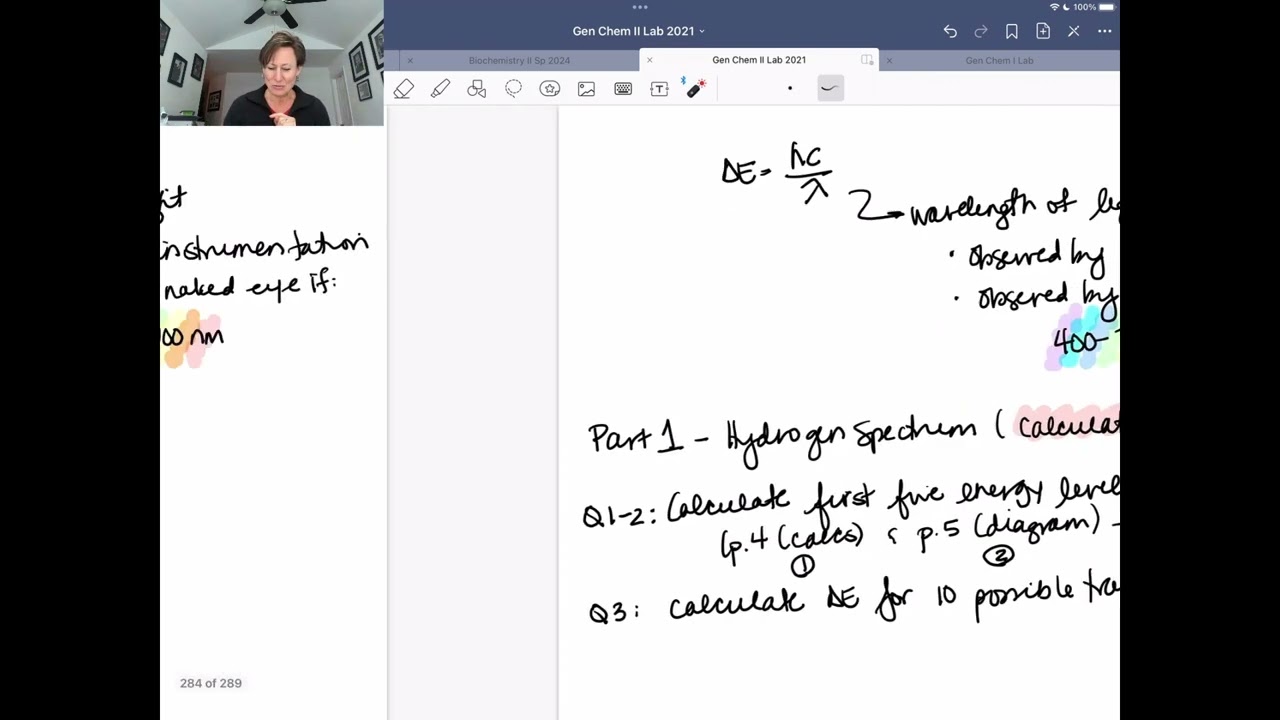 100%
Gen Chem II Lab 2021
Biochemistry II Sp 2024
Gen Chem II Lab 2021
Gen Chem I Lab
instrumentation
naked eye if:
00 nm
284 of 289
ΔE = hc/λ
wavelength of
• observed by
• observed by
400-
Part 1 - Hydrogen Spectrum (calculat
Q1-2: Calculate first five energy level
(p.4 (calcs) & p.5 (diagram) -
① ②
Q3: calculate ΔE for 10 possible tra